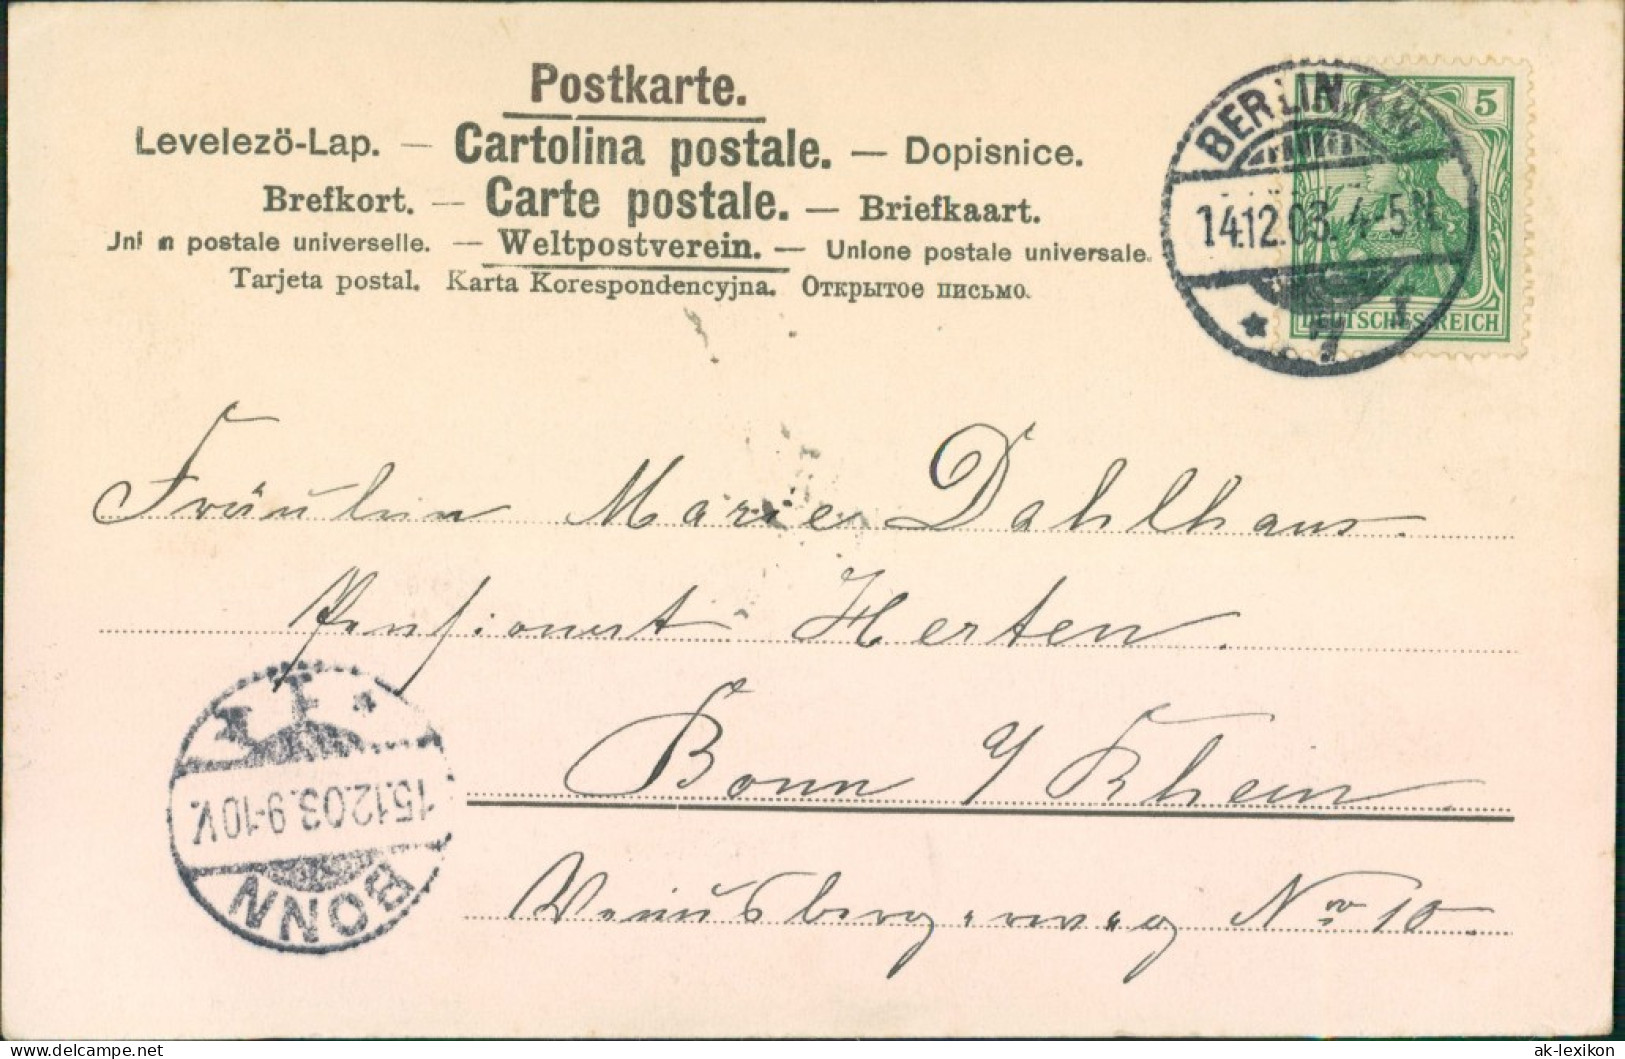 Postkarte.
Levelezö-Lap. — Cartolina postale. — Dopisnice.
Brefkort. — Carte postale. — Briefkaart.
postale universelle. — Weltpostverein. — Unione postale universale.
Tarjeta postal. Karta Korespondencyjna. Открытое письмо.
BERLIN, N.W.
14.12.03. 4-5 N.
* 7 f
5
DEUTSCHES REICH
Fräulein Marie Dahlhaus.
Pensionat Herten.
Bonn a/ Rhein.
Venusbergerweg No 10.
BONN
15.12.03. 9-10 V.
* 1 f
delcampe.net
ak-lexikon